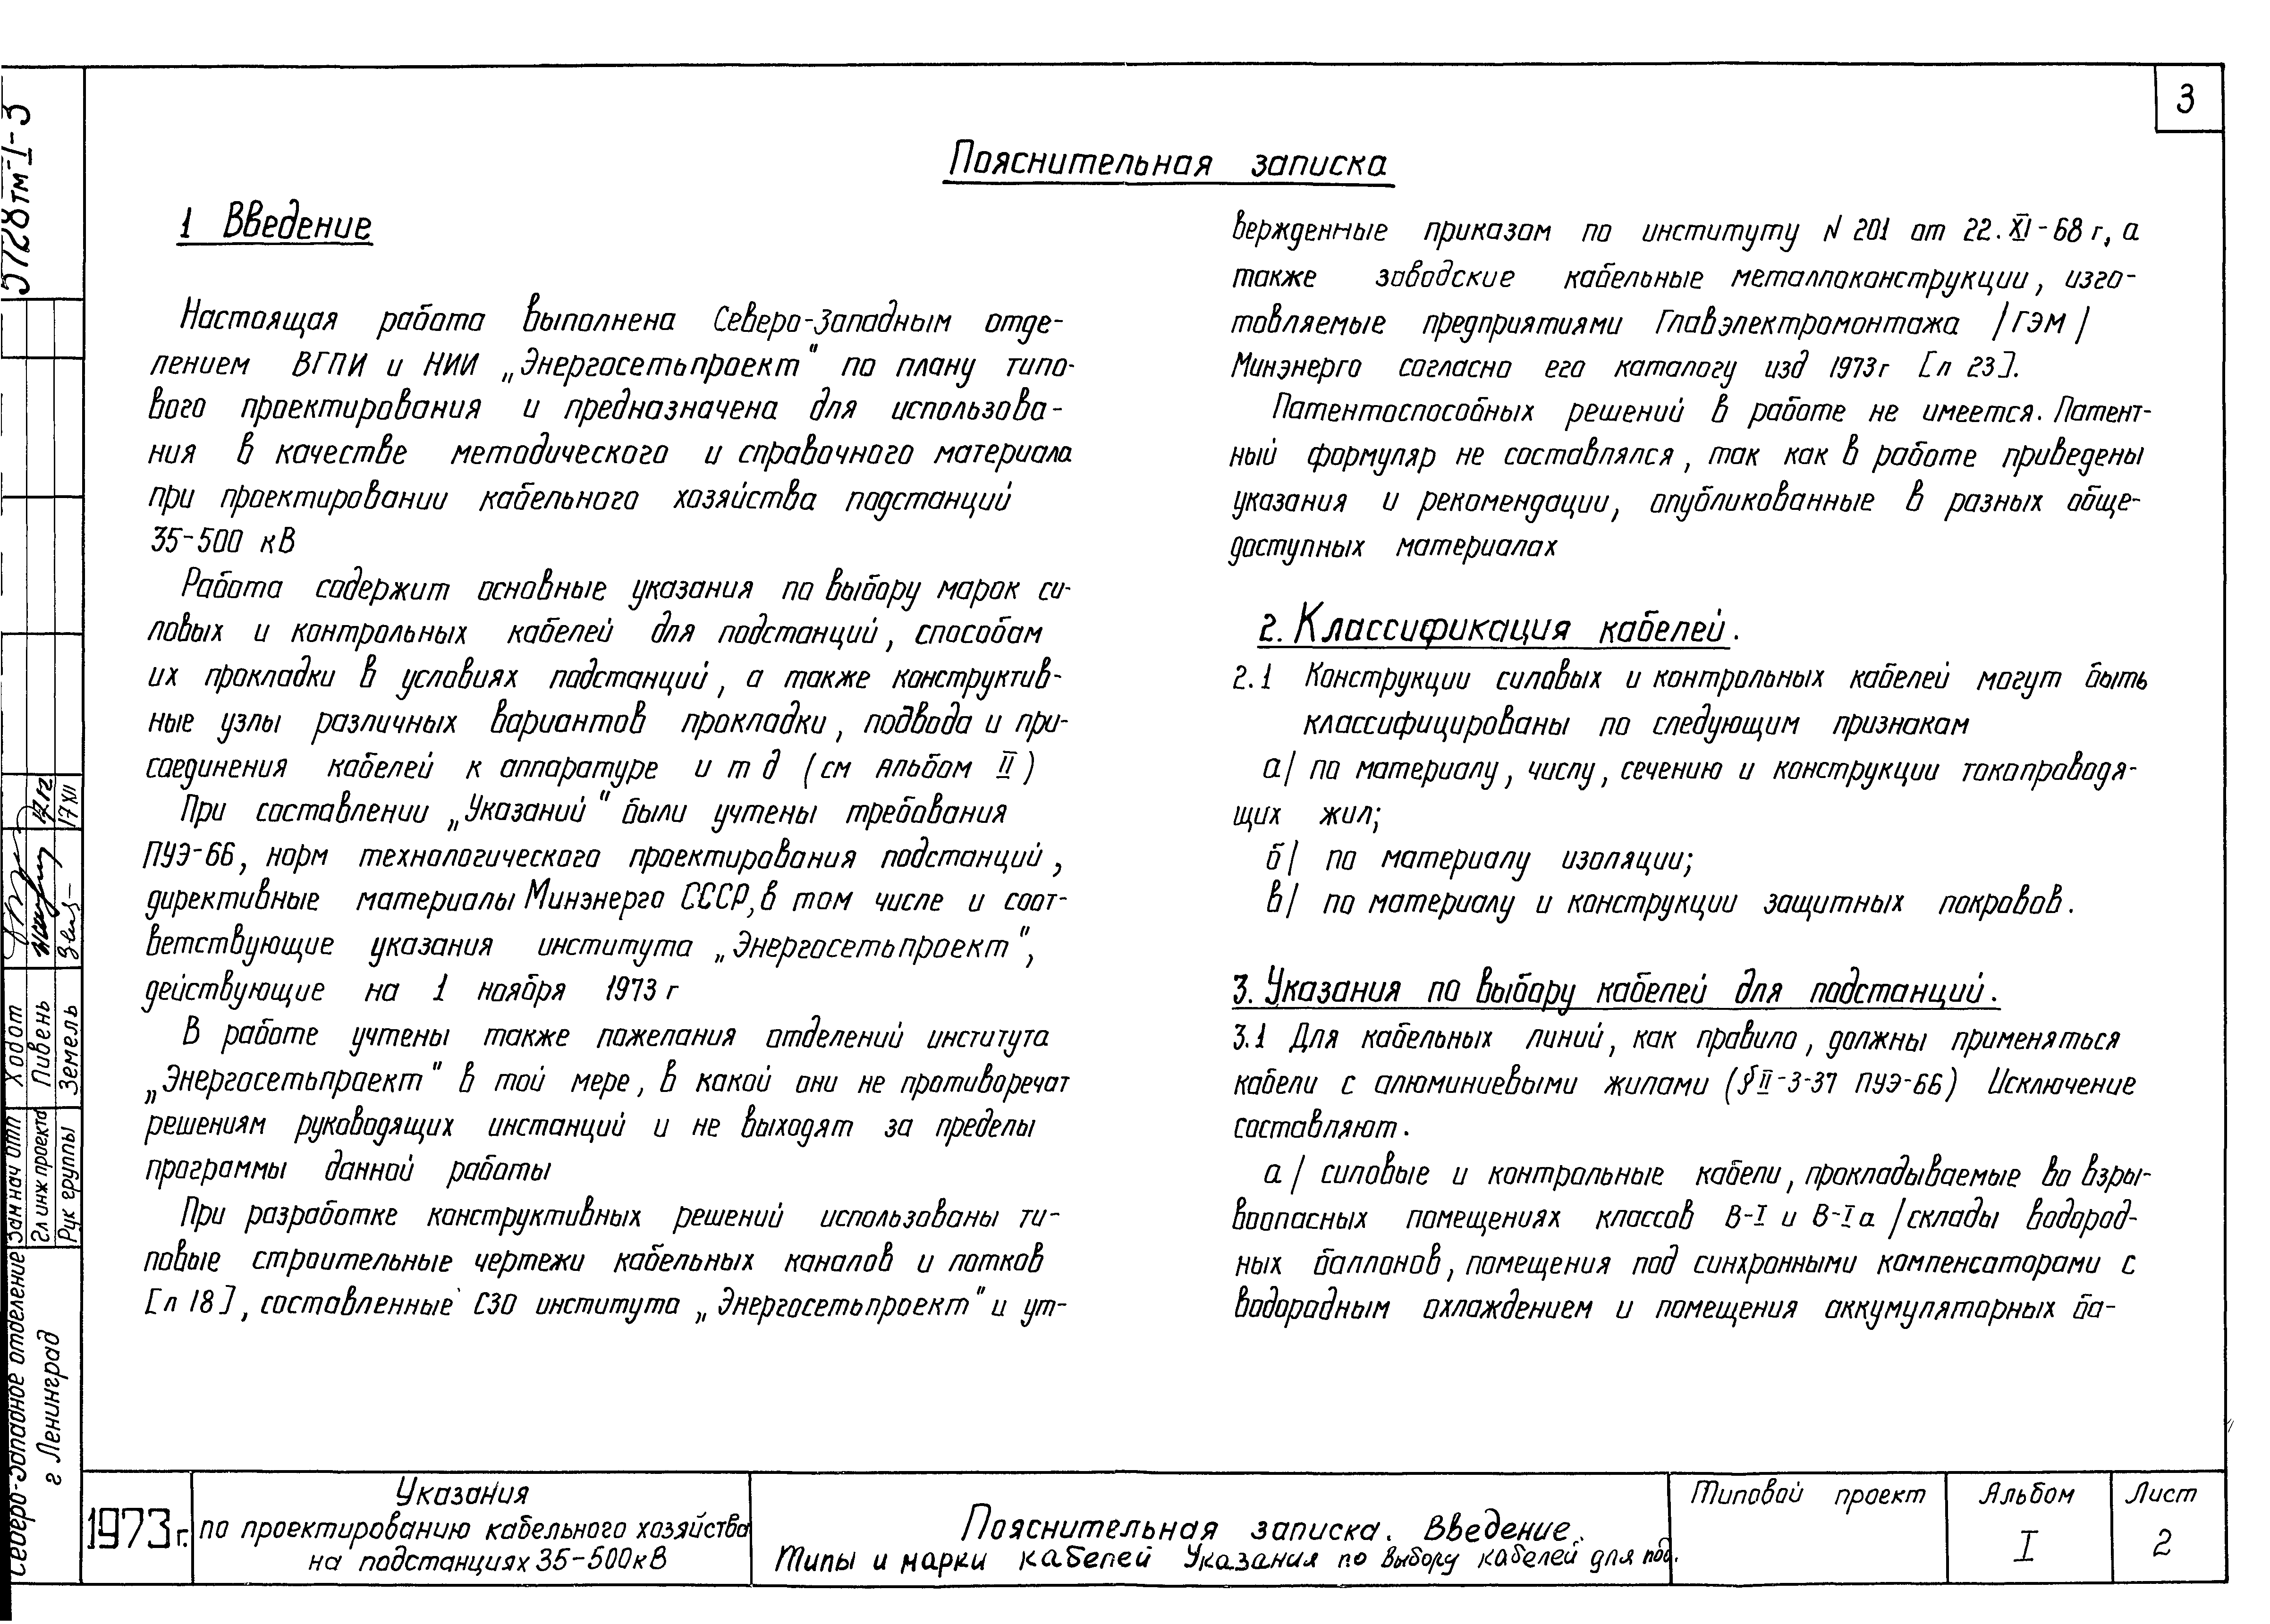 3
5728тм-I-3
Пояснительная записка
1 Введение
Настоящая работа выполнена Северо-Западным отде-
лением ВГПИ и НИИ „Энергосетьпроект" по плану типо-
вого проектирования и предназначена для использова-
ния в качестве методического и справочного материала
при проектировании кабельного хозяйства подстанций
35-500 кВ
Работа содержит основные указания по выбору марок си-
ловых и контрольных кабелей для подстанций, способам
их прокладки в условиях подстанций, а также конструктив-
ные узлы различных вариантов прокладки, подвода и при-
соединения кабелей к аппаратуре и т д (см альбом II)
При составлении „Указаний" были учтены требования
ПУЭ-66, норм технологического проектирования подстанций,
директивные материалы Минэнерго СССР, в том числе и соот-
ветствующие указания института „Энергосетьпроект",
действующие на 1 ноября 1973 г
В работе учтены также пожелания отделений института
„Энергосетьпроект" в той мере, в какой они не противоречат
решениям руководящих инстанций и не выходят за пределы
программы данной работы
При разработке конструктивных решений использованы ти-
повые строительные чертежи кабельных каналов и лотков
[л 18], составленные СЗО института „Энергосетьпроект" и ут-
вержденные приказом по институту N 201 от 22.XI-68 г, а
также заводские кабельные металлоконструкции, изго-
товляемые предприятиями Главэлектромонтажа /ГЭМ/
Минэнерго согласно его каталогу изд 1973г [л 23].
Патентоспособных решений в работе не имеется. Патент-
ный формуляр не составлялся, так как в работе приведены
указания и рекомендации, опубликованные в разных обще-
доступных материалах
2. Классификация кабелей.
2.1 Конструкции силовых и контрольных кабелей могут быть
классифицированы по следующим признакам
а/ по материалу, числу, сечению и конструкции токопроводя-
щих жил;
б/ по материалу изоляции;
в/ по материалу и конструкции защитных покровов.
3. Указания по выбору кабелей для подстанций.
3.1 Для кабельных линий, как правило, должны применяться
кабели с алюминиевыми жилами (§ II-3-37 ПУЭ-66) Исключение
составляют.
а/ силовые и контрольные кабели, прокладываемые во взры-
воопасных помещениях классов В-I и В-Iа /склады водород-
ных баллонов, помещения под синхронными компенсаторами с
водородным охлаждением и помещения аккумуляторных ба-
Зам нач отп Ходот
Гл инж проекта Пивень
Рук группы Земель
17 XII
Северо-Западное отделение
г Ленинград
1973г.
Указания
по проектированию кабельного хозяйства
на подстанциях 35-500кВ
Пояснительная записка. Введение.
Типы и марки кабелей Указания по выбору кабелей для под.
Типовой проект
Альбом
I
Лист
2